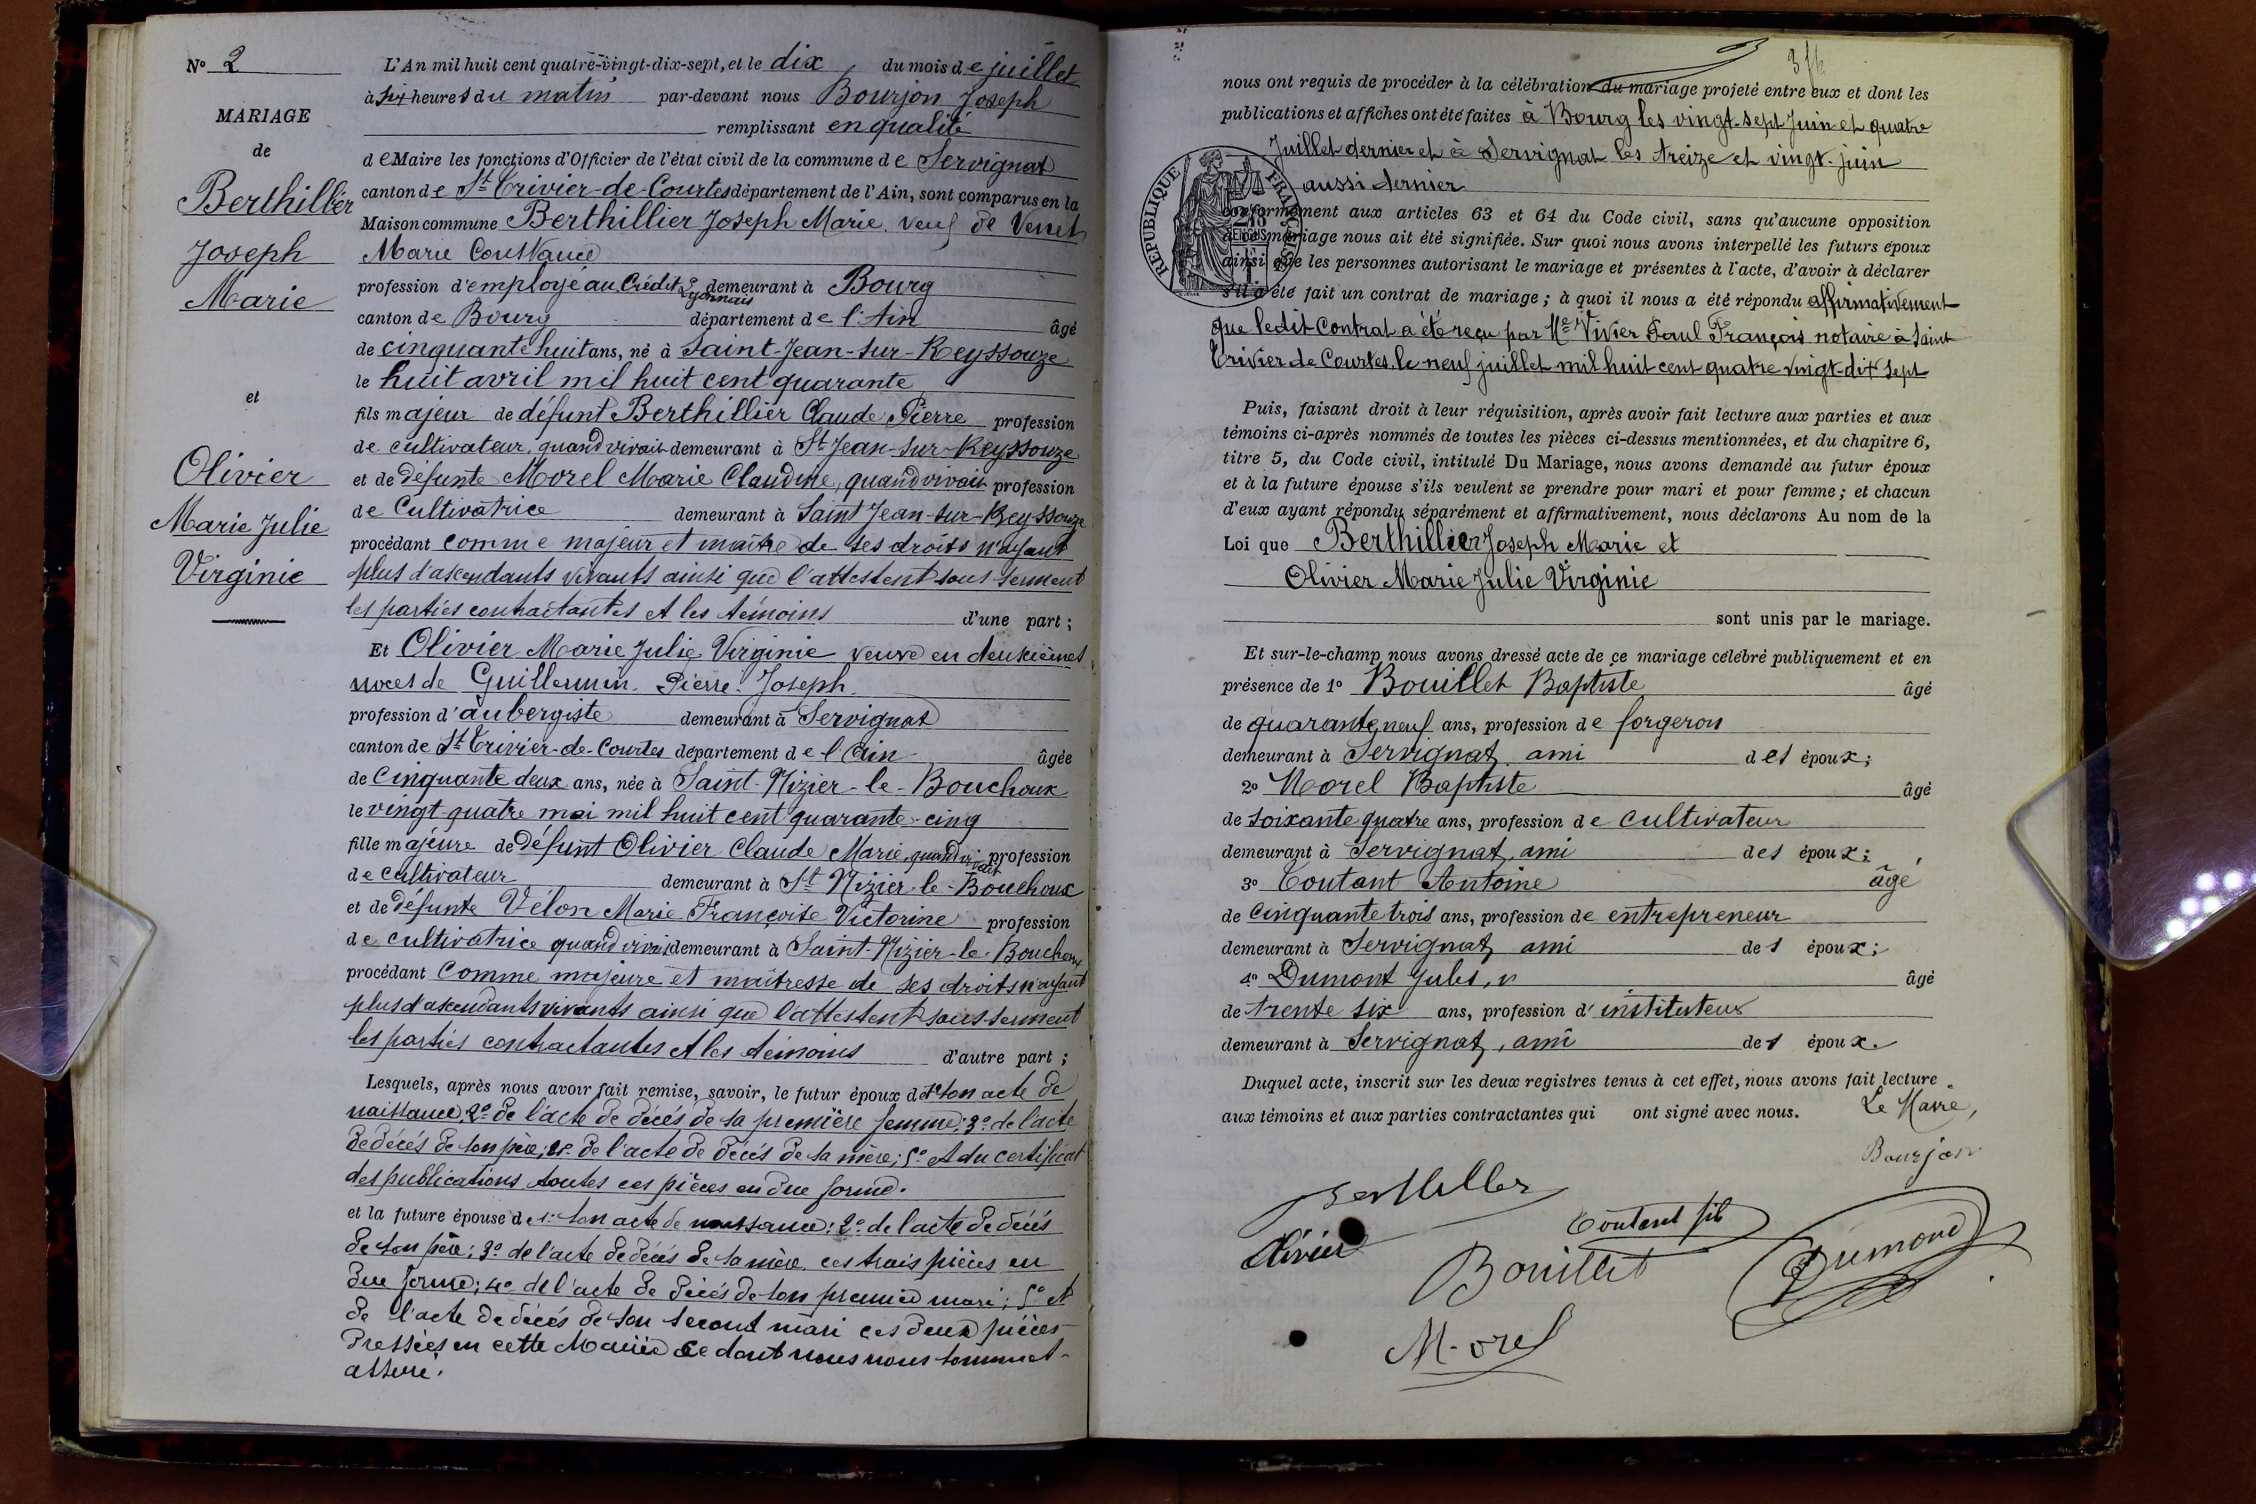 N° 2
MARIAGE
de
Berthillier
Joseph
Marie
et
Olivier
Marie Julie
Virginie
L'An mil huit cent quatre-vingt-dix-sept, et le dix du mois de juillet
à six heures du matin par-devant nous Bourjon Joseph
remplissant en qualité
de Maire les fonctions d'Officier de l'état civil de la commune de Servignat
canton de St Trivier-de-Courtes département de l'Ain, sont comparus en la
Maison commune Berthillier Joseph Marie, veuf de Verset
Marie Constance
profession d'employé au Crédit Lyonnais demeurant à Bourg
canton de Bourg département de l'Ain âgé
de cinquante huit ans, né à Saint-Jean-sur-Reyssouze
le huit avril mil huit cent quarante
fils majeur de défunt Berthillier Claude Pierre profession
de cultivateur, quand vivait demeurant à St Jean-sur-Reyssouze
et de défunte Morel Marie Claudine, quand vivait profession
de Cultivatrice demeurant à Saint Jean-sur-Reyssouze
procédant comme majeur et maître de ses droits n'ayant
plus d'ascendants vivants ainsi que l'attestent sous serment
les parties contractantes et les témoins d'une part ;
Et Olivier Marie Julie Virginie veuve en deuxièmes
noces de Guillemin Pierre Joseph
profession d'aubergiste demeurant à Servignat
canton de St Trivier-de-Courtes département de l'Ain âgée
de Cinquante deux ans, née à Saint-Nizier-le-Bouchoux
le vingt-quatre mai mil huit cent quarante-cinq
fille majeure de défunt Olivier Claude Marie, quand vivait profession
de cultivateur demeurant à St Nizier-le-Bouchoux
et de défunte Vélon Marie Françoise Victorine profession
de cultivatrice quand vivait demeurant à Saint-Nizier-le-Bouchoux
procédant comme majeure et maîtresse de ses droits n'ayant
plus d'ascendants vivants ainsi que l'attestent sous serment
les parties contractantes et les témoins d'autre part ;
Lesquels, après nous avoir fait remise, savoir, le futur époux de 1° son acte de
naissance, 2° de l'acte de décés de sa première femme; 3° de l'acte
de décés de son père; 4° de l'acte de décés de sa mère; 5° et du certificat
des publications toutes ces pièces en due forme.
et la future épouse de 1° son acte de naissance; 2° de l'acte de décés
de son père; 3° de l'acte de décés de sa mère, ces trois pièces en
due forme; 4° de l'acte de décés de son premier mari; 5° et
de l'acte de décés de son second mari ces deux pièces
dressées en cette Mairie ce dont nous nous sommes
assuré.
nous ont requis de procéder à la célébration du mariage projeté entre eux et dont les
publications et affiches ont été faites à Bourg les vingt-sept Juin et quatre
Juillet dernier et à Servignat les treize et vingt-juin
aussi dernier
RÉPUBLIQUE FRANÇAISE
conformément aux articles 63 et 64 du Code civil, sans qu'aucune opposition
audit mariage nous ait été signifiée. Sur quoi nous avons interpellé les futurs époux
ainsi que les personnes autorisant le mariage et présentes à l'acte, d'avoir à déclarer
s'il a été fait un contrat de mariage ; à quoi il nous a été répondu affirmativement
que ledit Contrat a été reçu par Me Vivier Paul François notaire à Saint
Trivier de Courtes, le neuf juillet mil huit cent quatre vingt-dix sept
Puis, faisant droit à leur réquisition, après avoir fait lecture aux parties et aux
témoins ci-après nommés de toutes les pièces ci-dessus mentionnées, et du chapitre 6,
titre 5, du Code civil, intitulé Du Mariage, nous avons demandé au futur époux
et à la future épouse s'ils veulent se prendre pour mari et pour femme ; et chacun
d'eux ayant répondu séparément et affirmativement, nous déclarons Au nom de la
Loi que Berthillier Joseph Marie et
Olivier Marie Julie Virginie
sont unis par le mariage.
Et sur-le-champ nous avons dressé acte de ce mariage célébré publiquement et en
présence de 1° Bouillet Baptiste âgé
de quarante neuf ans, profession de forgeron
demeurant à Servignat, ami des époux ;
2° Morel Baptiste âgé
de soixante quatre ans, profession de cultivateur
demeurant à Servignat, ami des époux ;
3° Coutant Antoine âgé
de cinquante trois ans, profession de entrepreneur
demeurant à Servignat, ami des époux ;
4° Dumont Jules, âgé
de trente six ans, profession d'instituteur
demeurant à Servignat, ami des époux.
Duquel acte, inscrit sur les deux registres tenus à cet effet, nous avons fait lecture
aux témoins et aux parties contractantes qui ont signé avec nous. Le Maire,
Bourjon
Berthillier
Olivier
Coutant fils
Bouillet
Dumond
Morel